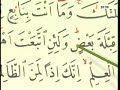 ـلَتَكَ وَمَآ أَنتَ بِتَابِعٍ
قِبْلَةَ بَعْضٍ وَلَئِنِ ٱتَّبَعْتَ أَهـ
ٱلْعِلْمِ إِنَّكَ إِذًا لَّمِنَ ٱلظَّـٰلـ